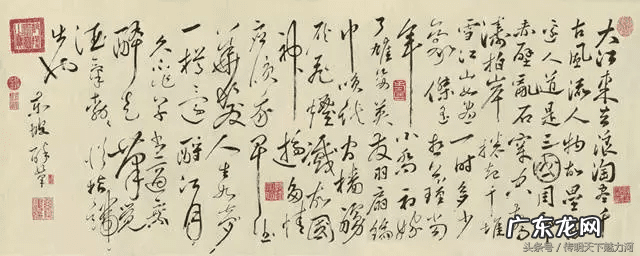 大江東去浪淘盡千
古風流人物故壘
邊人道是三國周
赤壁亂石穿空
濤拍岸捲起千堆
雪江山如畫一時多少
豪傑遙想公瑾當
年小喬初嫁
了雄姿英發羽扇綸
巾談笑間檣艣
灰飛煙滅故國
神遊多情
應笑我早生
華髮人生如夢
一樽還酹江月
久不作草書適乘
醉走筆覺
酒氣勃勃從指端
出也
東坡醉筆
广东龙网
头条号 / 传明天下魅力河